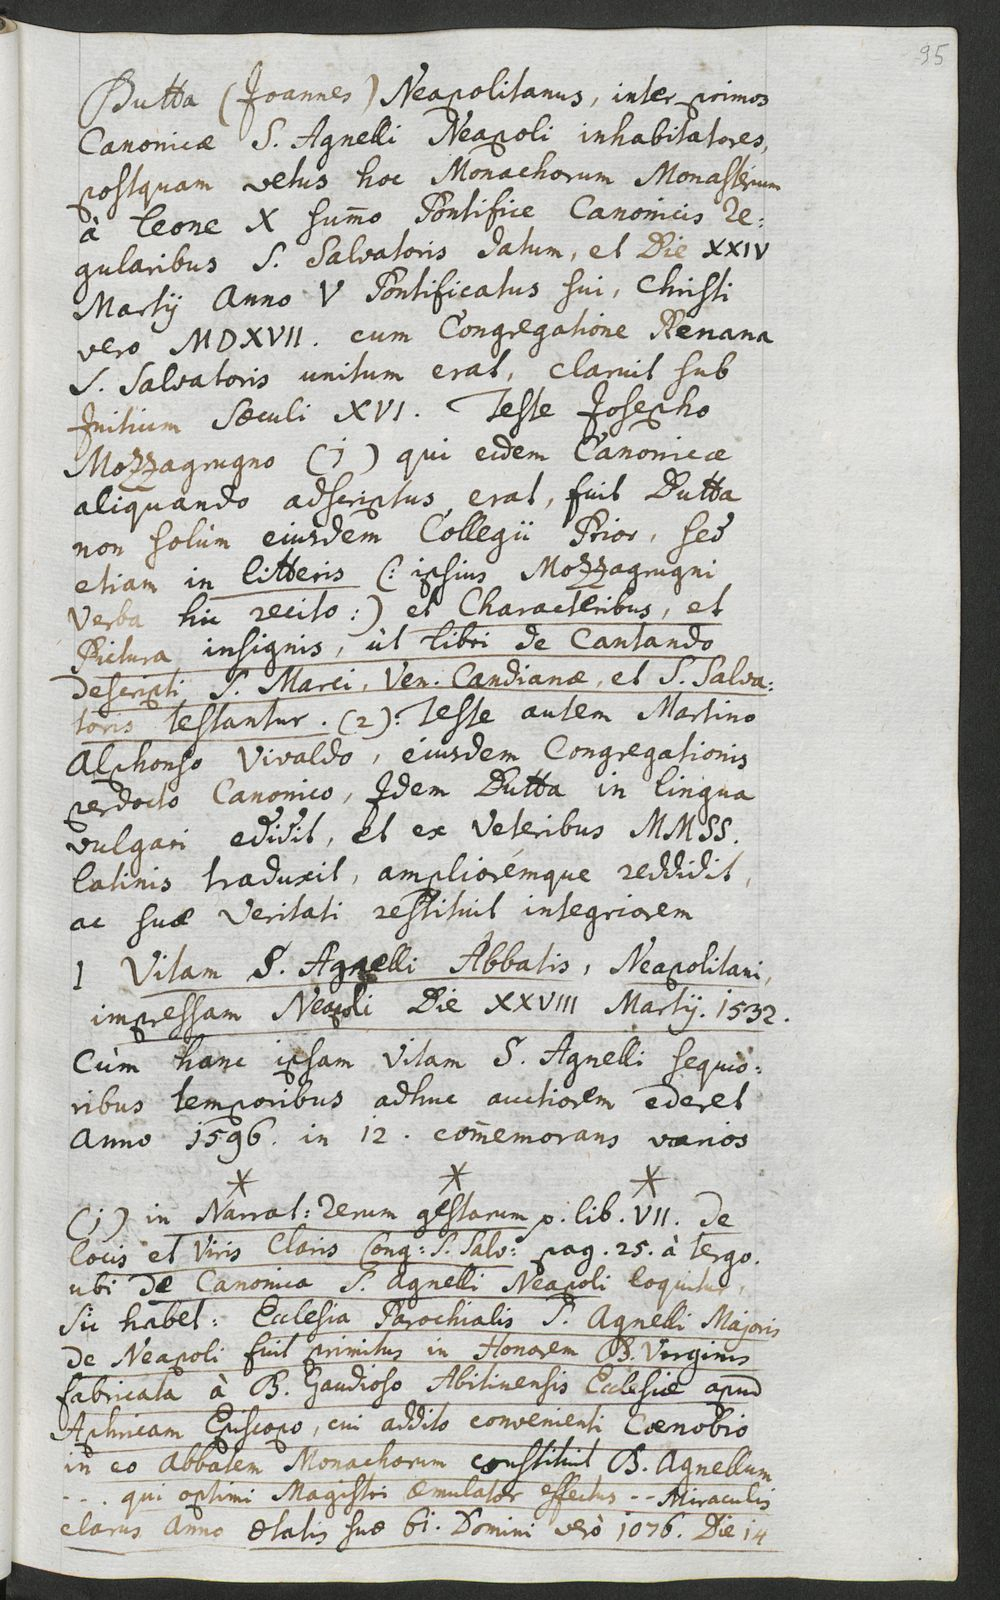 95
Dutta (Joannes) Neapolitanus, inter primos
Canonicæ S. Agnelli Neapoli inhabitatores,
postquam vetus hoc Monachorum Monasterium
à Leone X Sum̄o Pontifice Canonicis Re:
gularibus S. Salvatoris datum, et Die XXIV
Martij Anno V Pontificatus sui, Christi
vero MDXVII. cum Congregatione Renana
S. Salvatoris unitum erat, claruit sub
Initium Sæculi XVI. Teste Josepho
Mozzagrugno (1) qui eidem Canonicæ
aliquando adscriptus erat, fuit Dutta
non solùm eiusdem Collegii Prior, sed
etiam in litteris (: ipsius Mozzagrugni
Verba hic recito :) et Characteribus, et
Pictura insignis, ùt libri de Cantando
descripti S. Marci, Ven. Candianæ, et S. Salva:
toris testantur. (2): Teste autem Martino
Alphonso Vivaldo, eiusdem Congregationis
perdocto Canonico, Idem Dutta in lingua
vulgari edidit, et ex Veteribus MMSS.
latinis traduxit, amplioremque reddidit,
ac suæ veritati restituit integriorem
1 Vitam S. Agnelli Abbatis, Neapolitani,
impressam Neapoli Die XXVIII Martij. 1532.
Cùm hanc ipsam Vitam S. Agnelli sequio:
ribus temporibus adhuc auctiorem ederet
Anno 1596. in 12. com̄emorans varios
* * *
(1) in Narrat: Rerum gestarum p. lib. VII. de
locis et Viris Claris Cong: S. Salv: pag. 25. à tergo.
ubi de Canonica S. Agnelli Neapoli loquitur,
Sic habet: Ecclesia Parochialis S. Agnelli Majoris
de Neapoli fuit primitus in Honorem B. Virginis
fabricata à B. Gaudioso Abitinensis Ecclesiæ apud
Aphricam Episcopo, cui addito convenienti Cœnobio
in eo Abbatem Monachorum constituit B. Agnellum
--. qui optimi Magistri æmulator effectus -- Miraculis
clarus Anno ætatis suæ 61. Domini verò 1076. Die 14